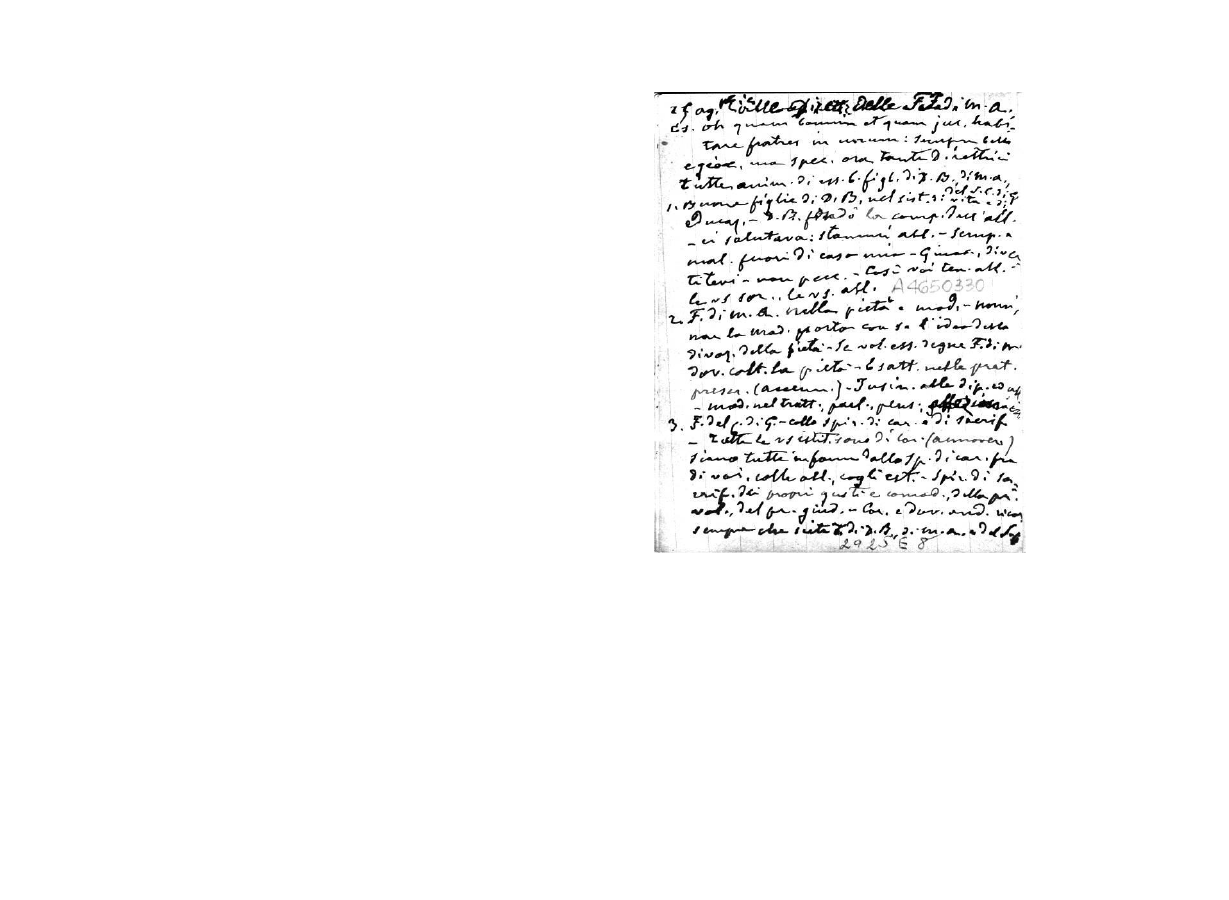 25 ag. alle Dirett. delle F. di m. a.
Es. oh quam bonum et quam juc. habi-
tare fratres in unum: sempre bello
e gioc. ma spec. ora tante direttrici
tutte anim. di ess. b. figl. di D. B. di m. a.
del S. C. di G.
1. Buone figlie di D. B. nel sist. di vita e di
Educaz. - D. B. la comp. dell' all.
- ci salutava: stammi all. - Semp. a
mal. fuori di casa mia - Giuoc., diver
titevi - non pecc. - Così voi ten. all.
le vs sor., le vs. all. A4650330
2. F. di m. a. nella pietà e mod. - nomi,
non la mad. porta con se l'idea della
divoz. della pietà - Se vol. ess. degne F. di m
dov. colt. la pietà - Esatt. nelle prat.
prescr. (accenn.) - Insin. alle dip. ed
- mod. nel tratt., parl., pens.,
3. F. del C. di G. - collo spir. di car. e di sacrif
- Tutte le vs istit. sono di car. (annover)
siano tutte inform dallo sp. di car. fra
di voi, colle all., cogli est. - Spir. di sa
crif. dei propri gusti e comod., della pr.
vol., del pr. giud. - Cor. e dov. and. ricor
sempre che siete F. di D. B., di m. a. e del
2925 E 8